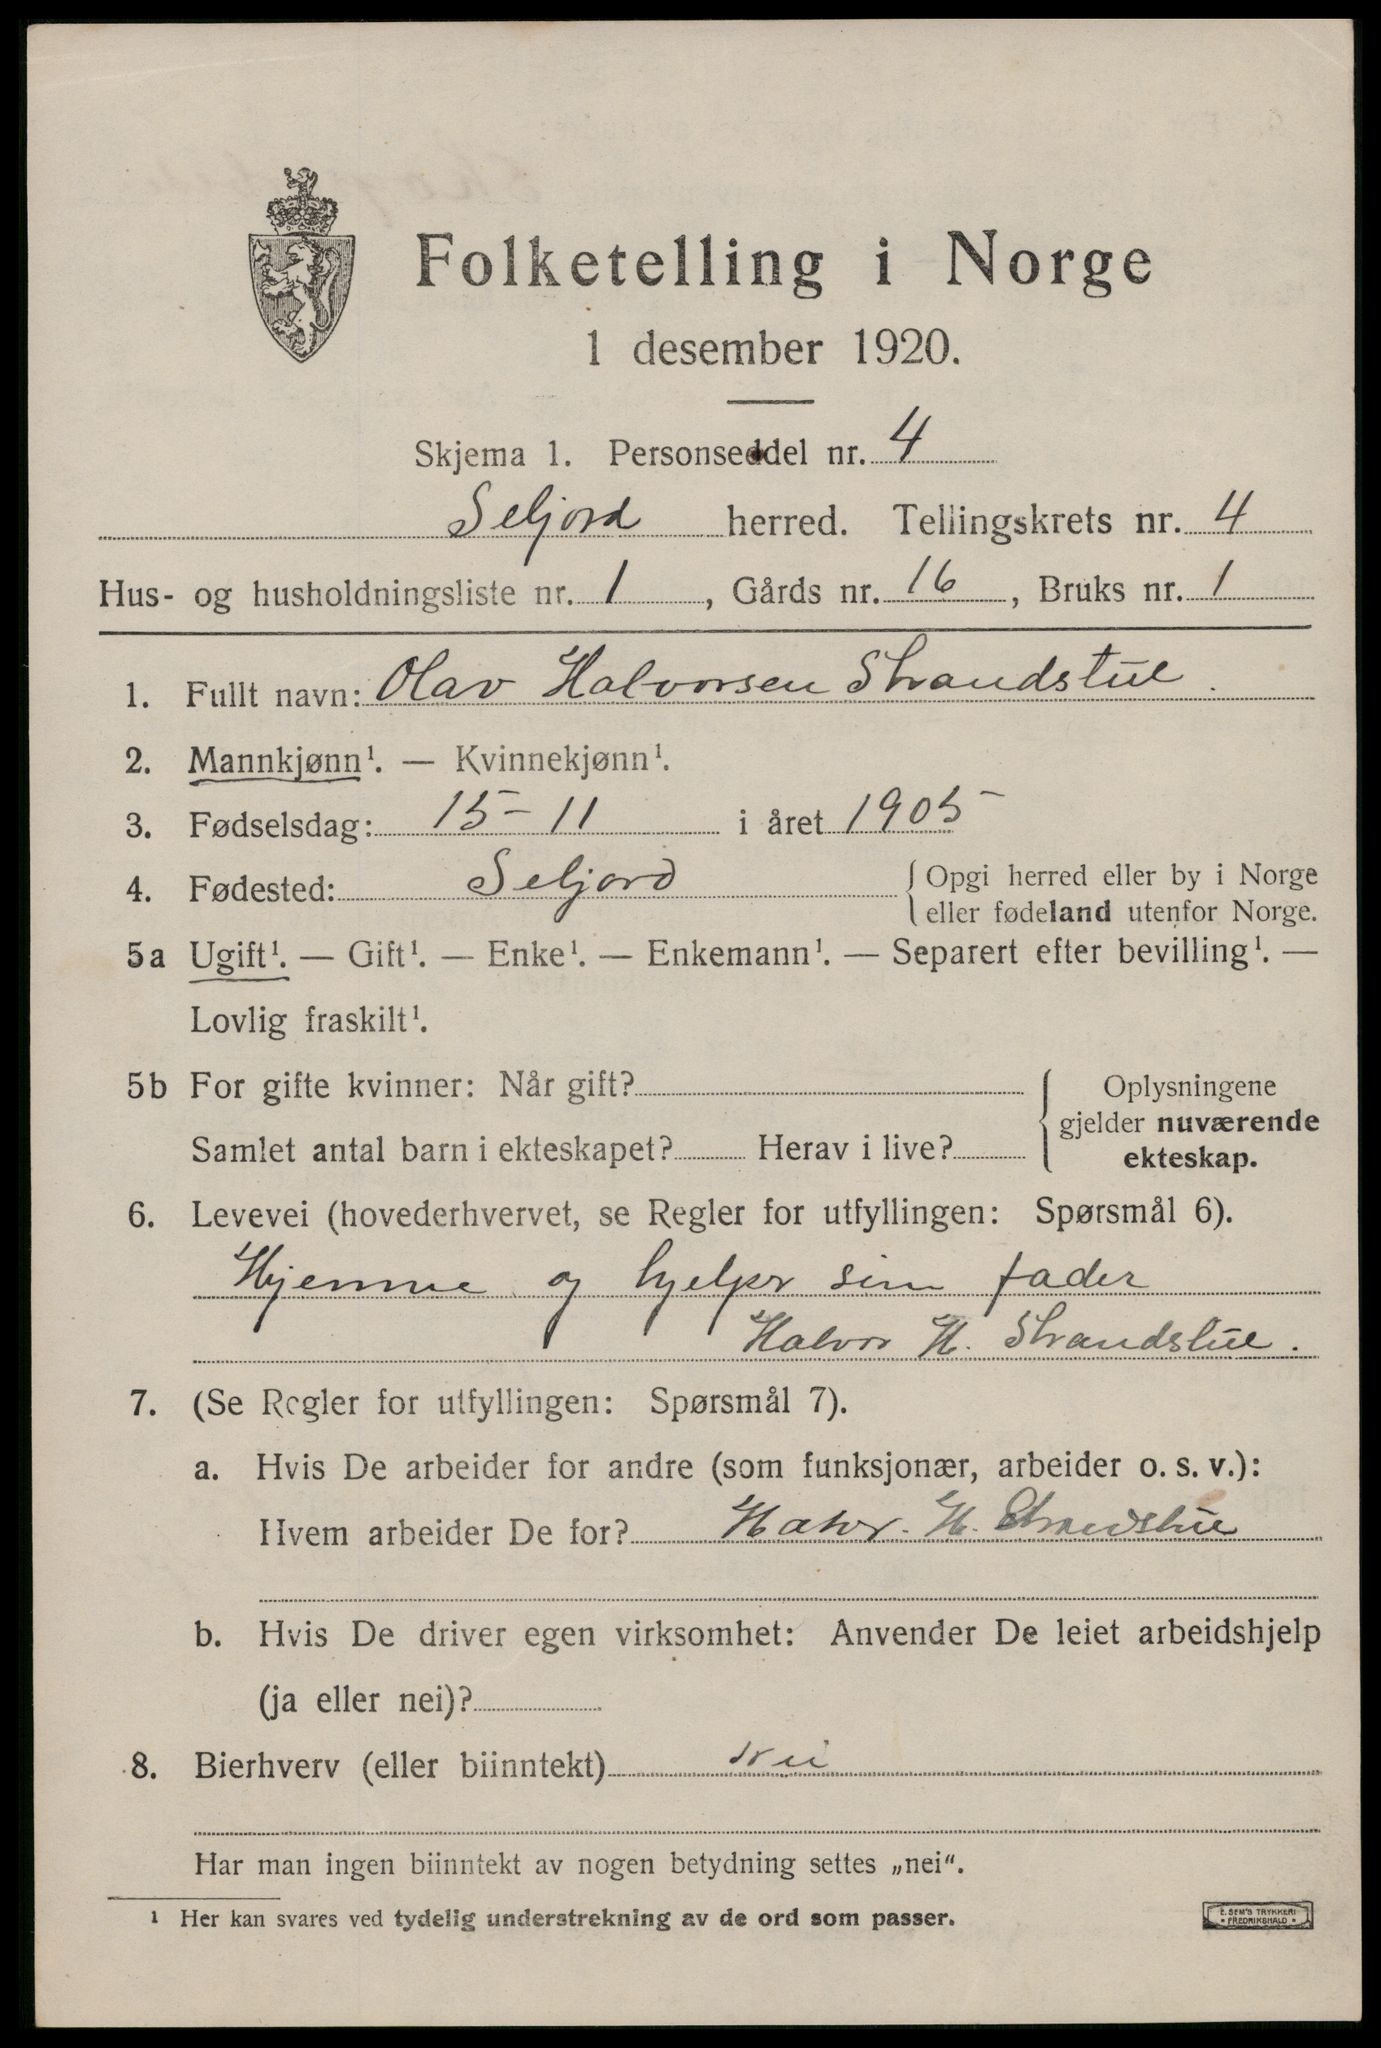 Folketelling i Norge
1 desember 1920.
Skjema 1. Personseddel nr. 4
Seljord herred. Tellingskrets nr. 4
Hus- og husholdningsliste nr. 1, Gårds nr. 16, Bruks nr. 1
1. Fullt navn: Olav Halvorsen Strandstue.
2. Mannkjønn¹. — Kvinnekjønn¹.
3. Fødselsdag: 15-11 i året 1905
4. Fødested: Seljord { Opgi herred eller by i Norge
eller fødeland utenfor Norge.
5a Ugift¹. — Gift¹. — Enke¹. — Enkemann¹. — Separert efter bevilling¹. —
Lovlig fraskilt¹.
5b For gifte kvinner: Når gift? { Oplysningene
gjelder nuværende
Samlet antal barn i ekteskapet? Herav i live? ekteskap.
6. Levevei (hovederhvervet, se Regler for utfyllingen: Spørsmål 6).
Hjemme og hjelper sin fader
Halvor H. Strandstue.
7. (Se Regler for utfyllingen: Spørsmål 7).
a. Hvis De arbeider for andre (som funksjonær, arbeider o. s. v.):
Hvem arbeider De for? Halvor. H. Strandstue
b. Hvis De driver egen virksomhet: Anvender De leiet arbeidshjelp
(ja eller nei)?
8. Bierhverv (eller biinntekt) nei
Har man ingen biinntekt av nogen betydning settes „nei“.
¹ Her kan svares ved tydelig understrekning av de ord som passer.
E. SEM'S TRYKKERI
• FREDRIKSHALD •